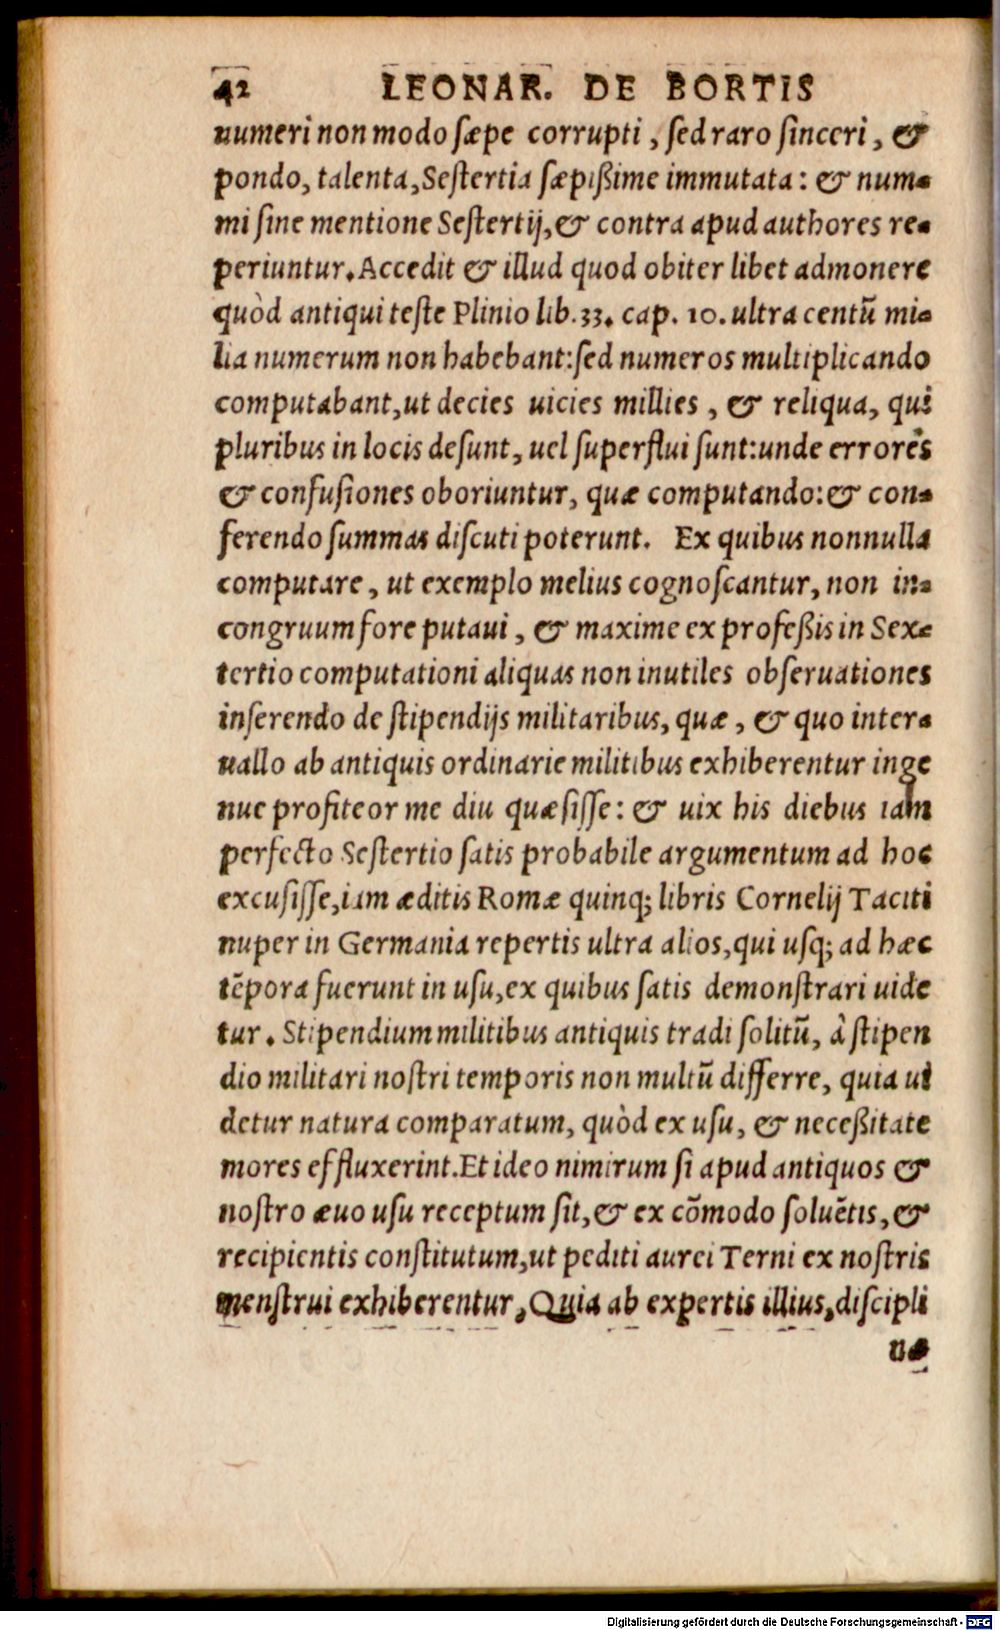 42 LEONAR. DE BORTIS
numeri non modo sæpe corrupti, sed raro sinceri, &
pondo, talenta, Sestertia sæpißime immutata: & num-
mi sine mentione Sestertij, & contra apud authores re-
periuntur. Accedit & illud quod obiter libet admonere
quòd antiqui teste Plinio lib. 33. cap. 10. ultra centũ mi-
lia numerum non habebant: sed numeros multiplicando
computabant, ut decies uicies millies, & reliqua, qui
pluribus in locis desunt, uel superflui sunt: unde errores
& confusiones oboriuntur, quæ computando: & con-
ferendo summas discuti poterunt. Ex quibus nonnulla
computare, ut exemplo melius cognoscantur, non in-
congruum fore putaui, & maxime ex profeßis in Sex-
tertio computationi aliquas non inutiles obseruationes
inserendo de stipendijs militaribus, quæ, & quo inter-
uallo ab antiquis ordinarie militibus exhiberentur inge
nue profiteor me diu quæsisse: & uix his diebus iam
perfecto Sestertio satis probabile argumentum ad hoc
excusisse, iam æditis Romæ quinq; libris Cornelij Taciti
nuper in Germania repertis ultra alios, qui usq; ad hæc
tẽpora fuerunt in usu, ex quibus satis demonstrari uide
tur. Stipendium militibus antiquis tradi solitũ, à stipen
dio militari nostri temporis non multũ differre, quia ui
detur natura comparatum, quòd ex usu, & neceßitate
mores effluxerint. Et ideo nimirum si apud antiquos &
nostro æuo usu receptum sit, & ex cõmodo soluẽtis, &
recipientis constitutum, ut pediti aurei Terni ex nostris
menstrui exhiberentur, Quia ab expertis illius, discipli
na
Digitalisierung gefördert durch die Deutsche Forschungsgemeinschaft - DFG